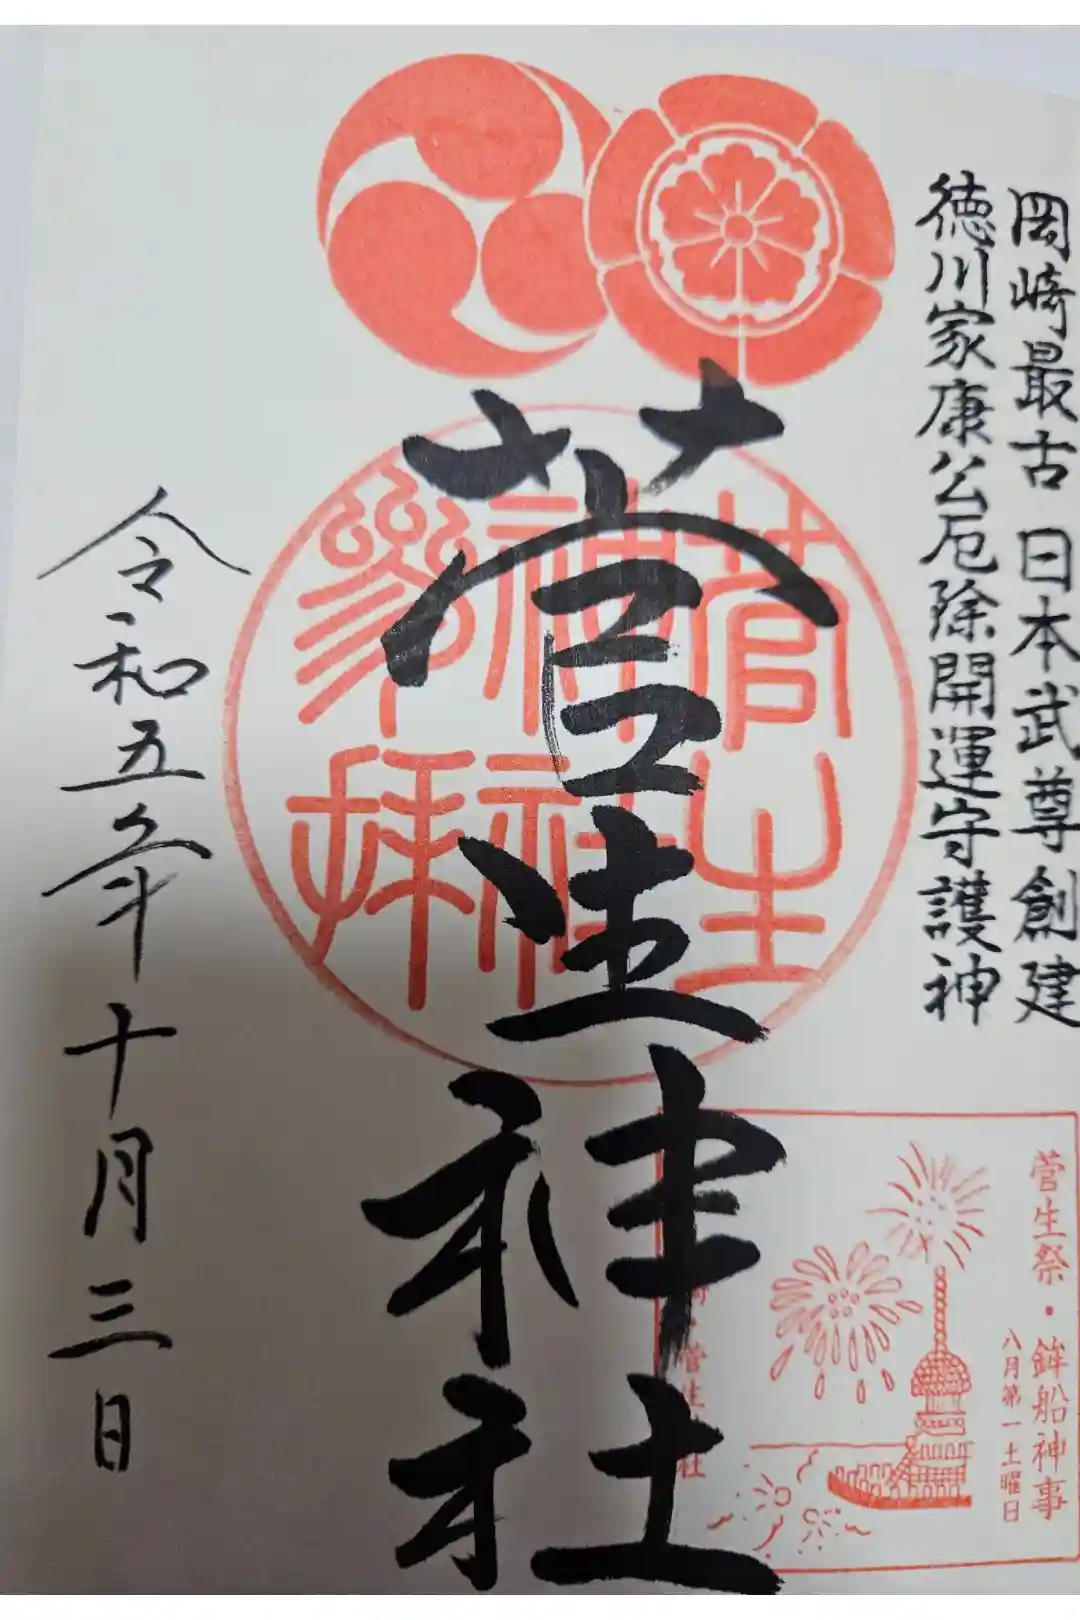 岡崎最古 日本武尊創建
徳川家康公厄除開運守護神
菅生神社
菅生
神社
参拝
菅生祭・鉾船神事
八月第一土曜日
令和五年十月三日